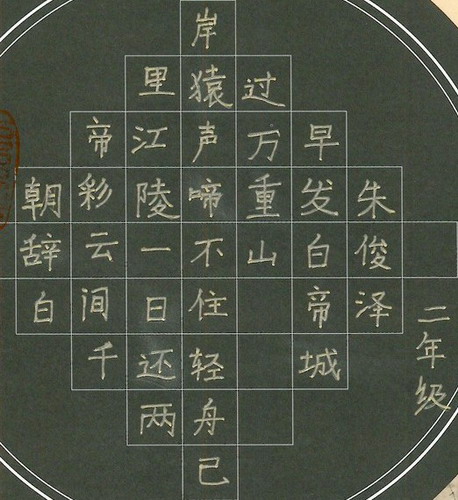 朝辞白
帝彩云间千
里江陵一日还两
岸猿声啼不住轻舟已
过万重山
早发白帝城
朱俊泽
二年级